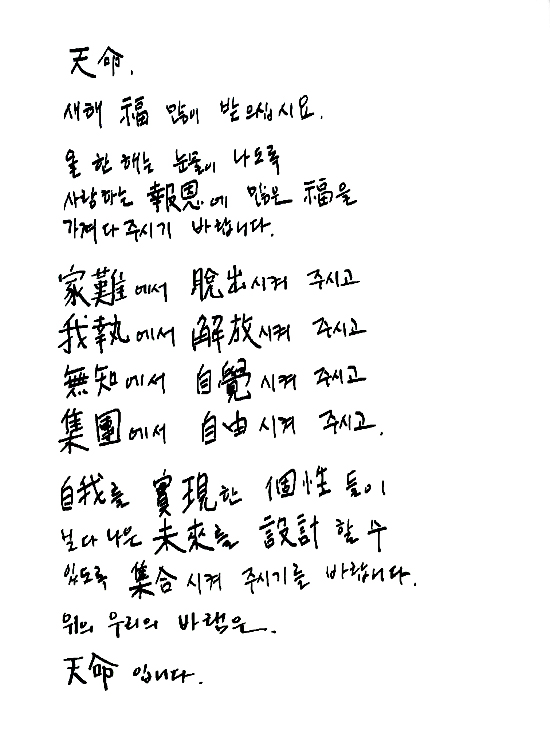 天命.
새해 福 많이 받으십시요.
올 한 해는 눈물이 나도록
사랑하는 報恩에 많은 福을
가져다 주시기 바랍니다.
家難에서 脫出시켜 주시고
我執에서 解放시켜 주시고
無知에서 自覺시켜 주시고
集團에서 自由시켜 주시고.
自我를 實現한 個性들이
보다 나은 未來를 設計할 수
있도록 集合시켜 주시기를 바랍니다.
위의 우리의 바램은.
天命입니다.